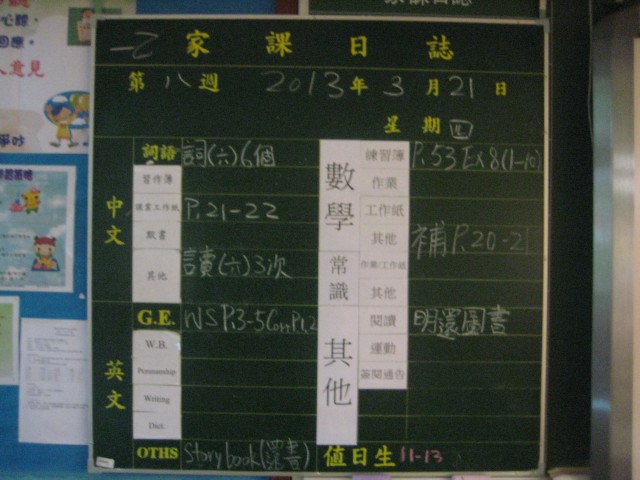 心聽，
回應。
意見
爭吵
一乙 家課日誌
第八週 2013年3月21日
星期四
中文
詞語 詞(六)6個
習作簿
P.21-22
默書
其他 讀(六)3次
英文
G.E. WS P.3-5 Corr P.1,2
W.B.
Penmanship
Writing
Dict.
OTHS Story book(還書)
數學
練習簿 P.53 Ex8(1-10)
作業
工作紙
其他 補P.20-21
常識
作業/工作紙
其他
其他
閱讀 明還圖書
運動
簽閱通告
值日生 11-13